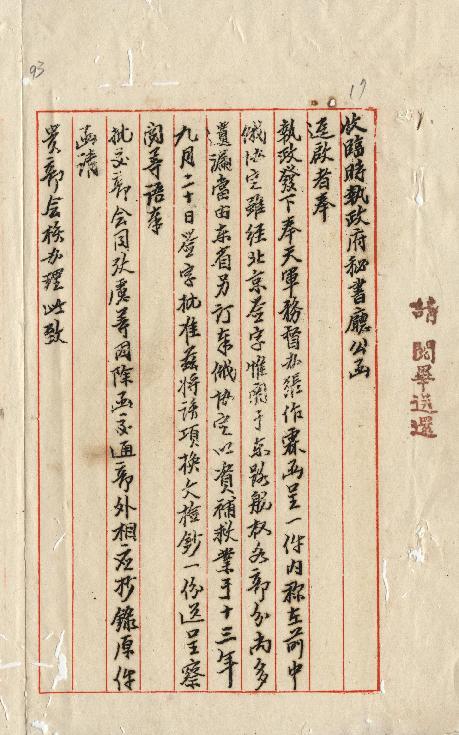 93
17
收臨時執政府秘書廳公函
逕啟者奉
執政發下奉天軍務督辦張作霖函呈一件內称在前中
俄協定雖經北京簽字惟關于東路航权各部分尚多
遺漏當由東省另訂奉俄協定以資補救業于十三年
九月二十日簽字批准茲將該項換文檢鈔一份送呈察
閱等語奉
批交部会同核議等因除函交通部外相应抄錄原件
函請
貴部会核办理此致
請閱畢送還